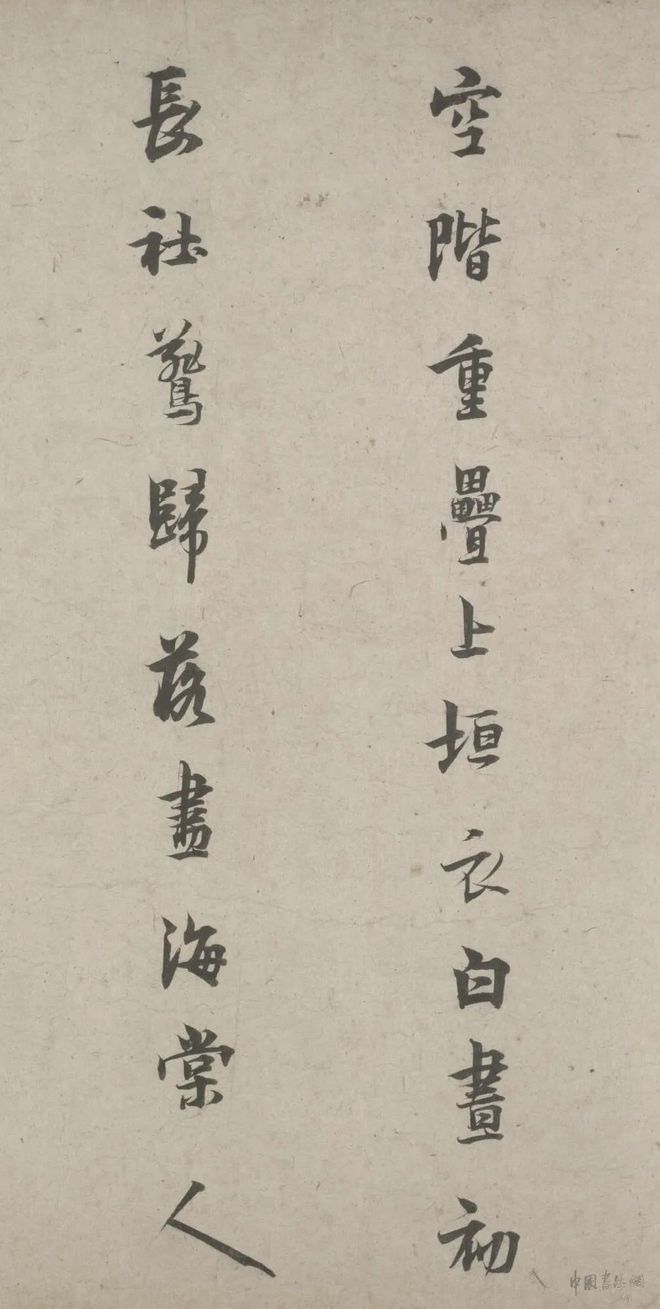 空階重疊上垣衣白晝初
長社鷰歸落盡海棠人
中國書法網